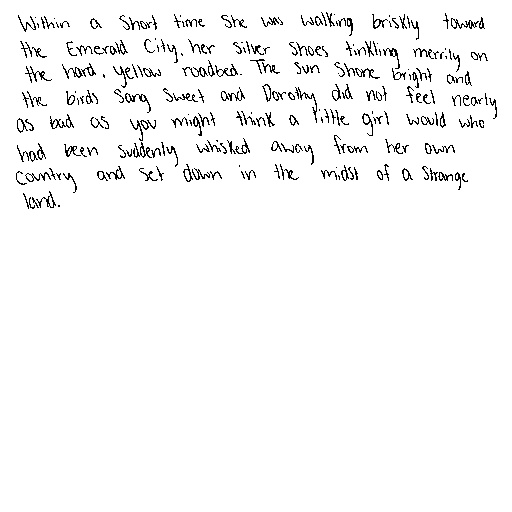 Within a short time she was walking briskly toward
the Emerald City, her Silver Shoes tinkling merrily on
the hard, yellow roadbed. The sun shone bright and
the birds sang sweet and Dorothy did not feel nearly
as bad as you might think a little girl would who
had been suddenly whisked away from her own
country and set down in the midst of a strange
land.